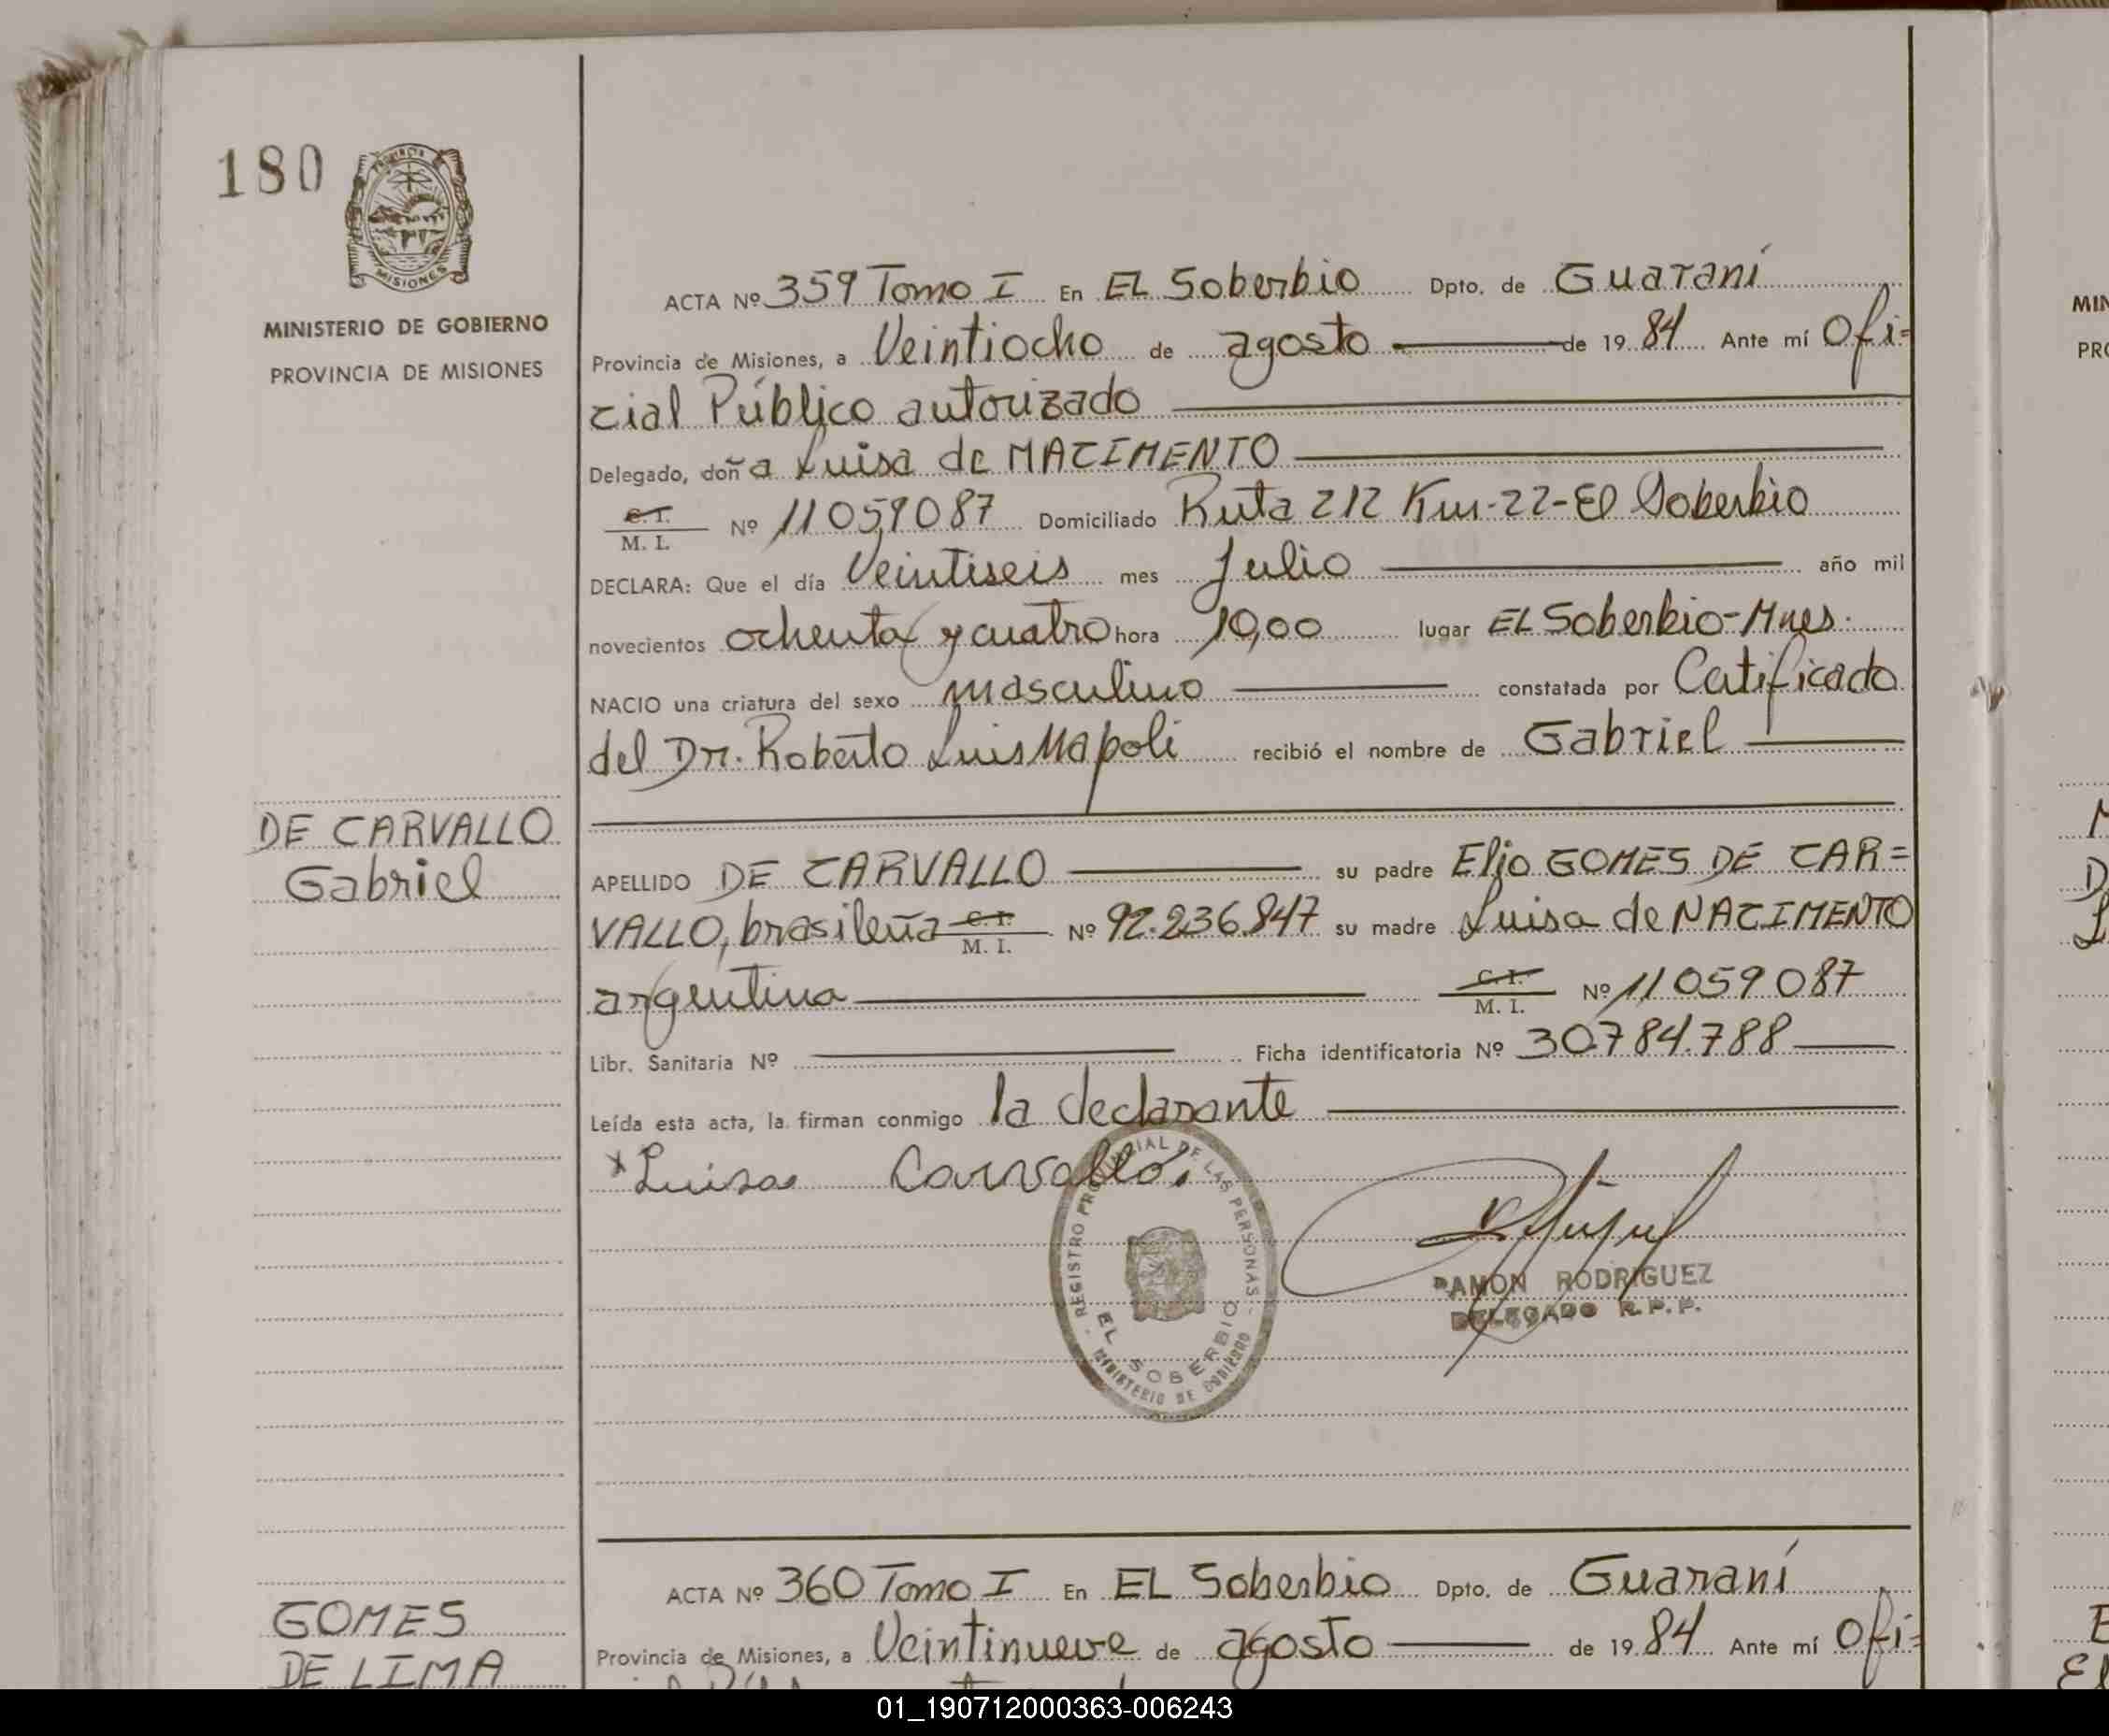 180
PROVINCIA
MISIONES
MINISTERIO DE GOBIERNO
PROVINCIA DE MISIONES
DE CARVALLO
Gabriel
ACTA Nº 359 Tomo I En EL Soberbio Dpto. de Guaraní
Provincia de Misiones, a Veintiocho de agosto de 19 84 Ante mí Ofi=
cial Público autorizado
Delegado, doña Luisa de NACIMENTO
C. I. M. I. Nº 11059087 Domiciliado Ruta 212 Km-22-El Soberbio
DECLARA: Que el día Veintiseis mes Julio año mil
novecientos ochenta y cuatro hora 10,00 lugar EL Soberbio-Mnes.
NACIO una criatura del sexo masculino constatada por Certificado
del Dr. Roberto Luis Napoli recibió el nombre de Gabriel
APELLIDO DE CARVALLO su padre Elio GOMES DE CAR=
VALLO, brasileña C. I. M. I. Nº 92.236.847 su madre Luisa de NACIMENTO
argentina C. I. M. I. Nº 11059087
Libr. Sanitaria Nº Ficha identificatoria Nº 30.784.788
Leída esta acta, la firman conmigo la declarante
x Luisa Carvallo.
REGISTRO PROVINCIAL DE LAS PERSONAS
EL SOBERBIO
MINISTERIO DE GOBIERNO
RAMON RODRIGUEZ
DELEGADO R. P. P.
GOMES
DE LIMA
ACTA Nº 360 Tomo I En EL Soberbio Dpto. de Guaraní
Provincia de Misiones, a Veintinueve de agosto de 19 84 Ante mí Ofi=
MIN
PRO
01_190712000363-006243